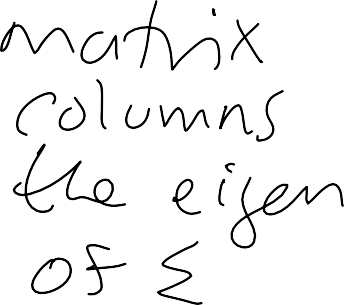 matrix
columns
the eigen
of Σ